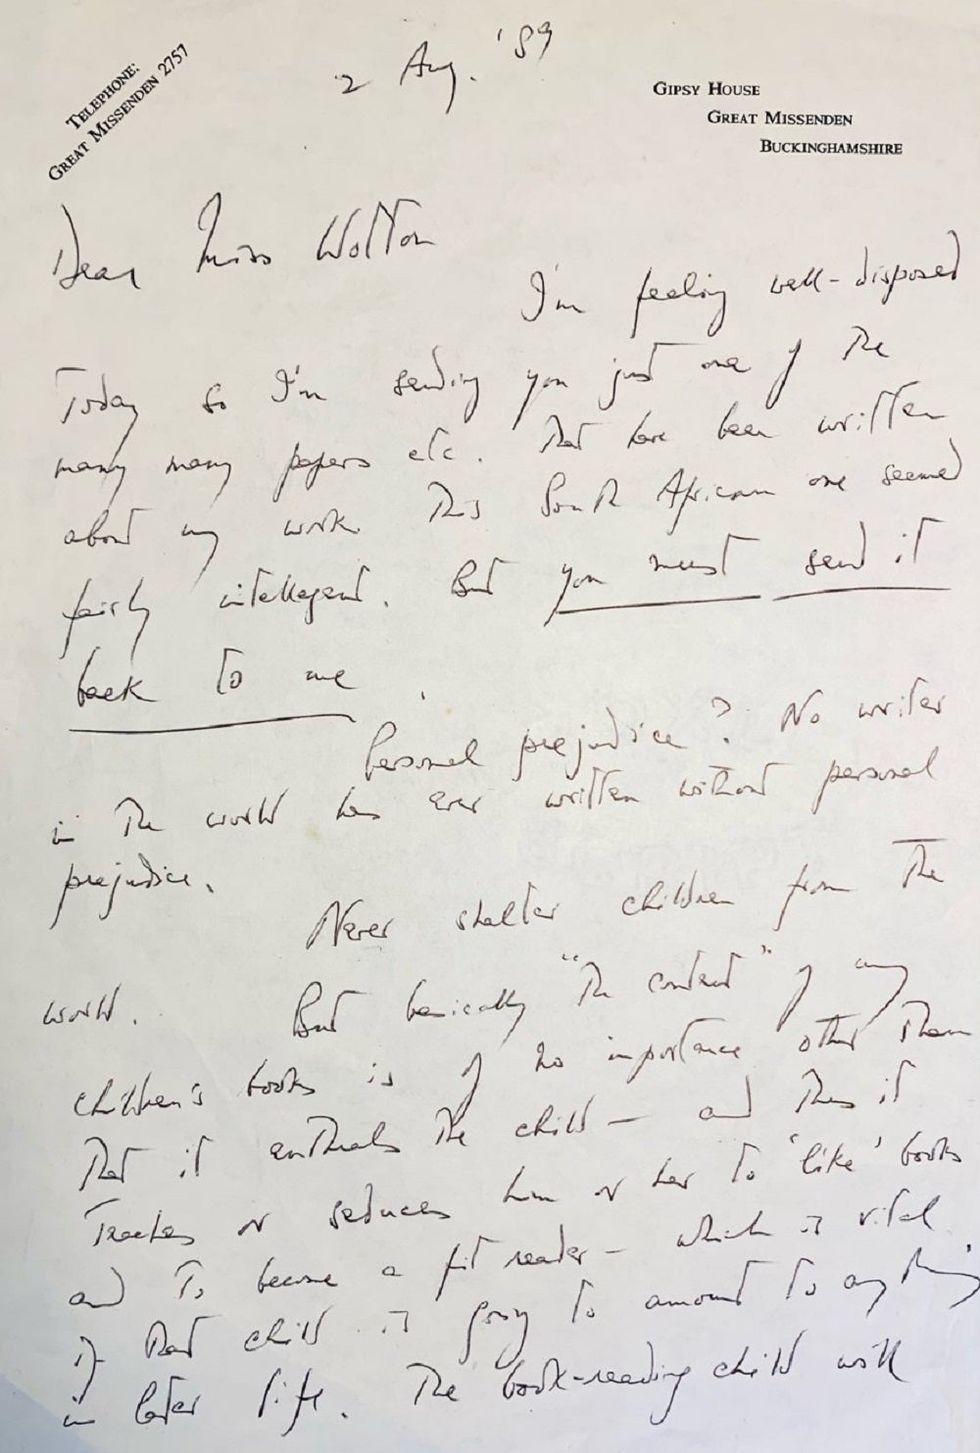 TELEPHONE:
GREAT MISSENDEN 2757
2 Aug. '89
GIPSY HOUSE
GREAT MISSENDEN
BUCKINGHAMSHIRE
Dear Miss Wotton
I'm feeling well-disposed
today so I'm sending you just one of the
many many papers etc. that have been written
about my work. This South African one seemed
fairly intellegent. But you must send it
back to me.
Personal prejudice? No writer
in the world has ever written without personal
prejudice.
Never shelter children from the
world. But basically "the content" of any
children's books is of no importance other than
that it enthrals the child – and thus it
teaches or seduces him or her to 'like' books
and to become a fit reader – which is vital
if that child is going to amount to anything
in later life. The book-reading child will